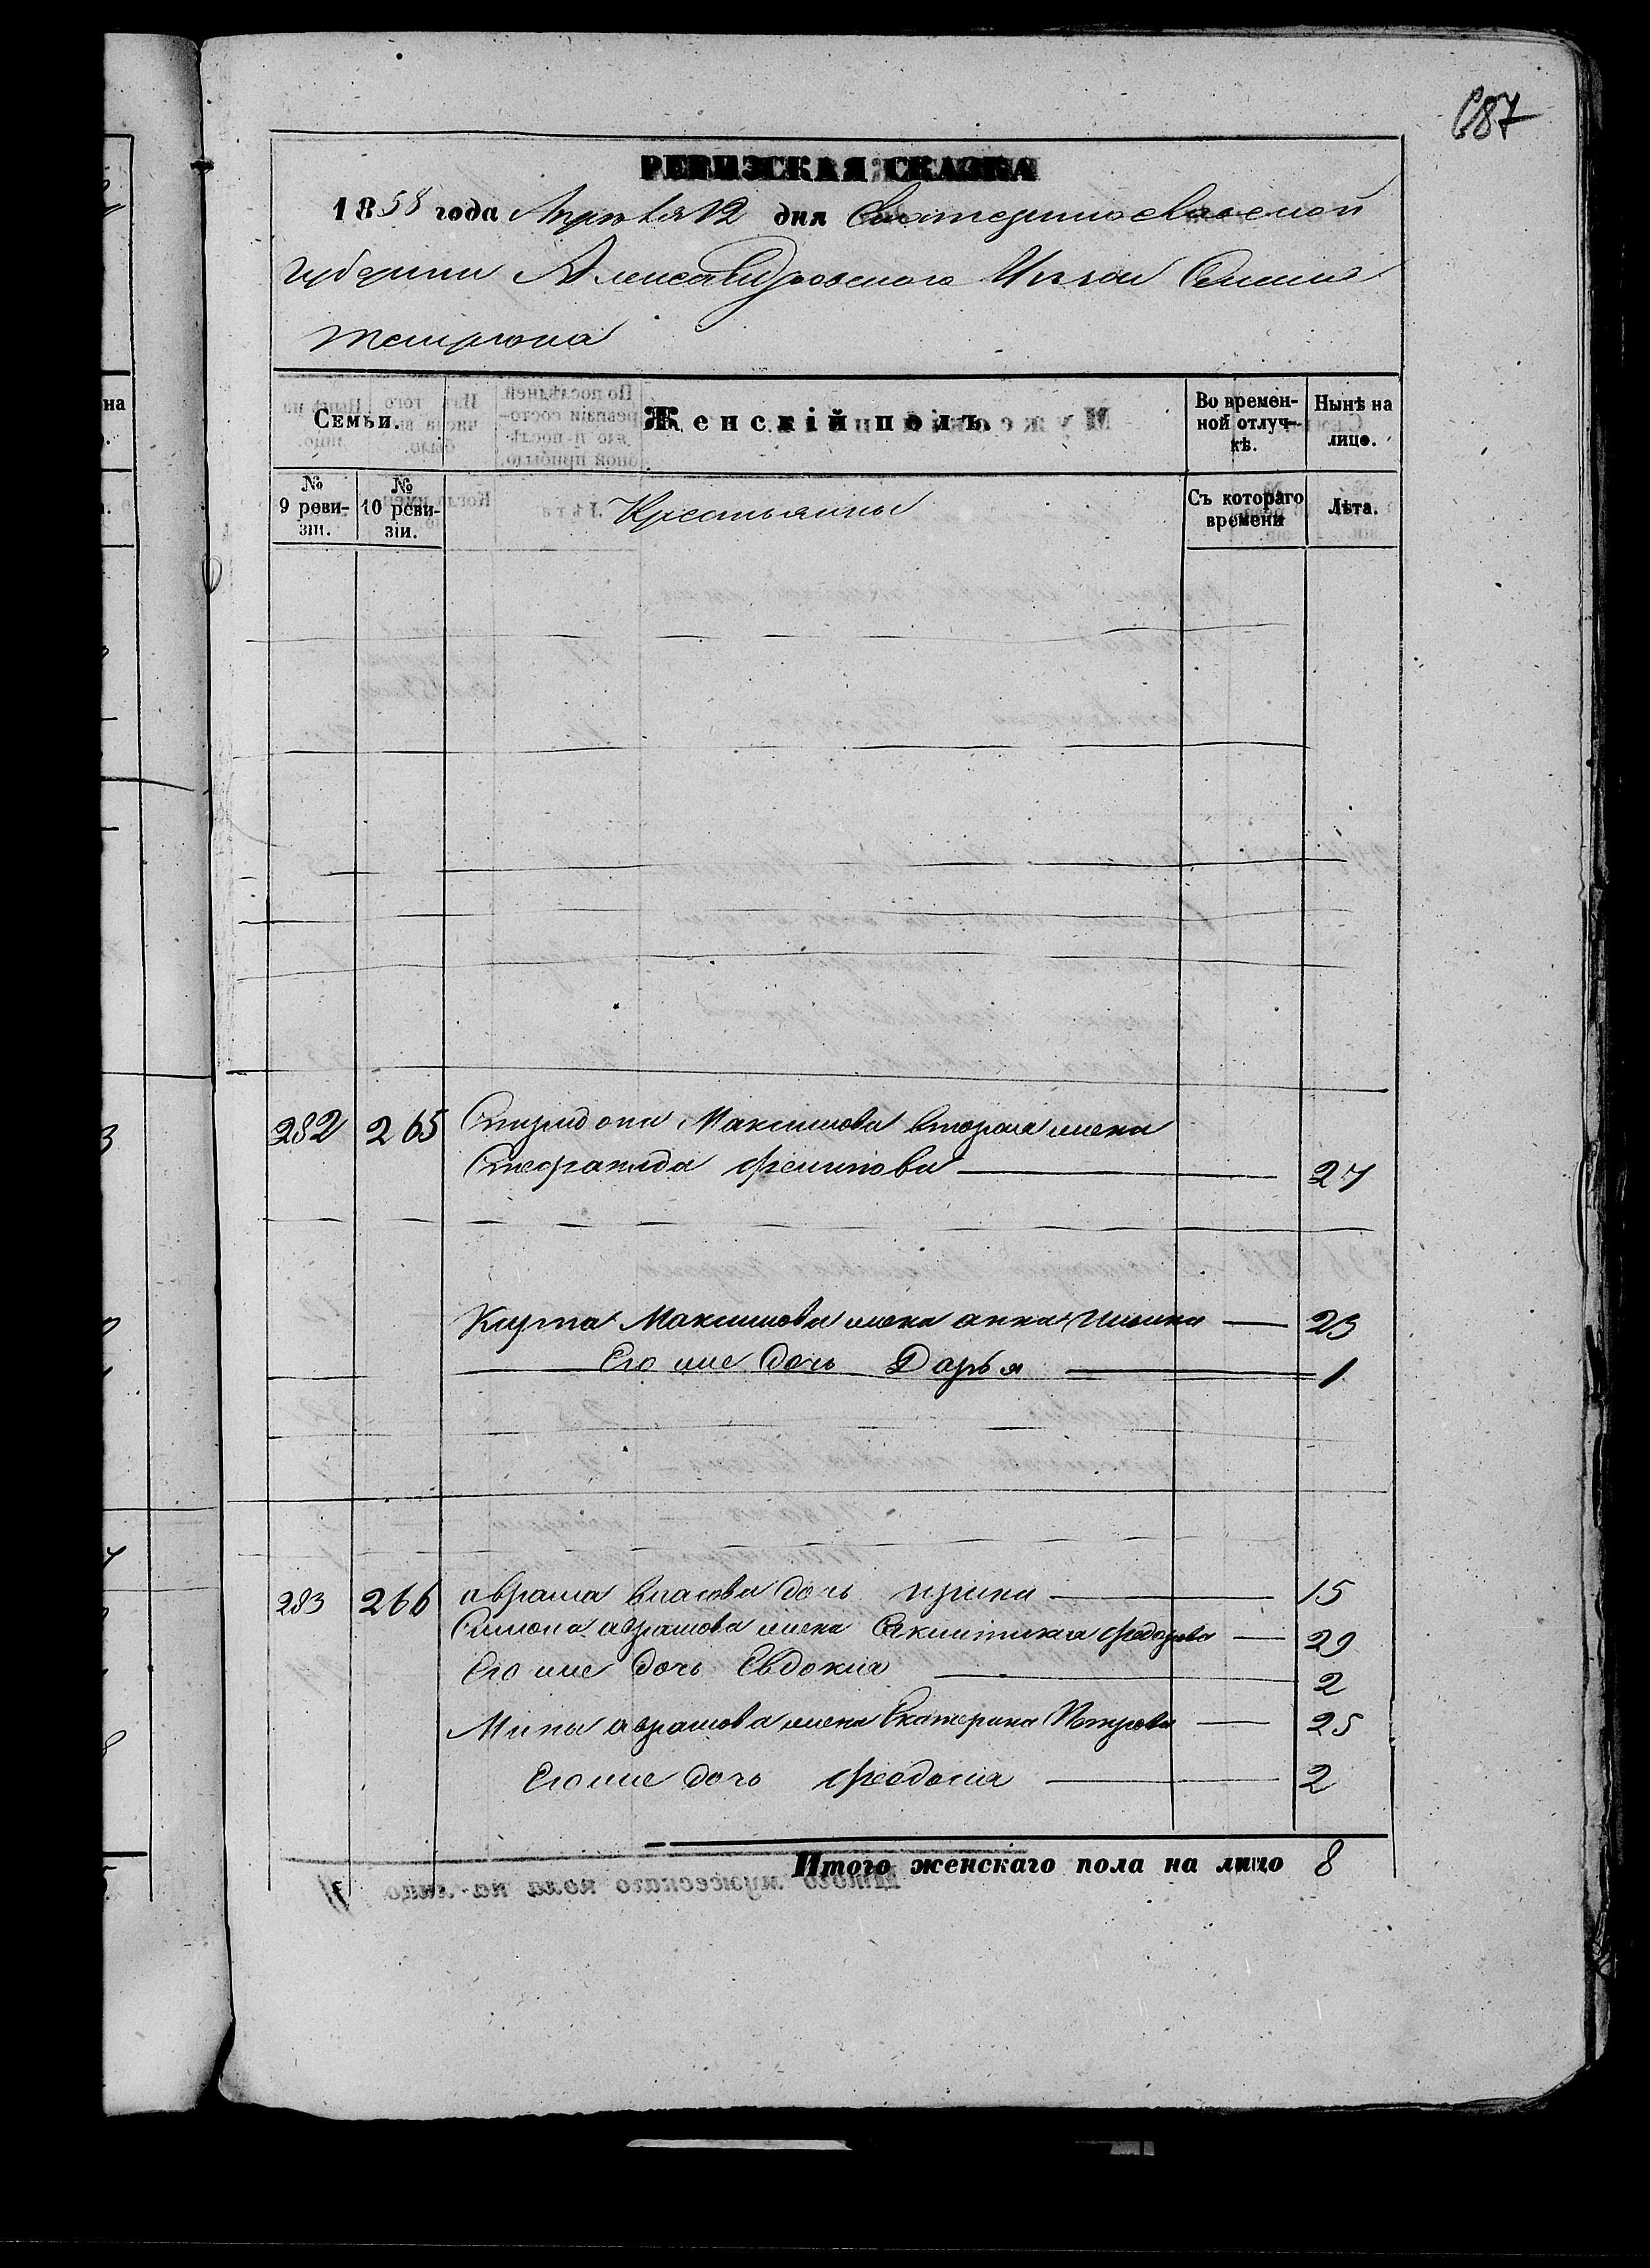 687
РЕВИЗСКАЯ СКАЗКА
1858 года Апреля 12 дня Екатеринославской
губернии Александровского Уезда Селения
Темрюка
Семьи.
Женскій полъ.
Во времен-
ной отлуч-
кѣ.
Нынѣ на
лицо.
№
9 реви-
зіи.
№
10 реви-
зіи.
Крестьянины
Съ котораго
времени
Лѣта.
282 265 Спиридона Максимова вторая жена
Стефанида Филипова 27
Карпа Максимова жена анна 23
Его же дочь Дарья 1
283 266 аврама власова дочь ирина 15
Симона аврамова жена федорова 29
Его же дочь Евдокия 2
Мины аврамова жена Екатерина Петрова 25
Его же дочь феодосия 2
Итого женскаго пола на лицо 8